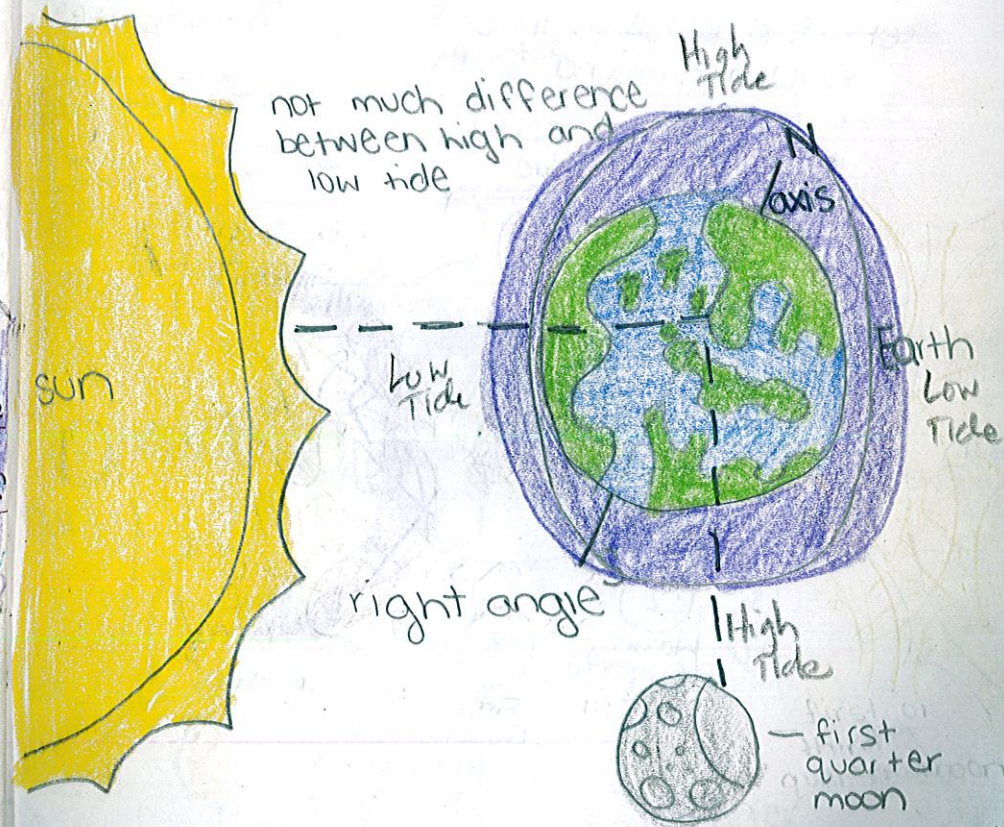 High
Tide
not much difference
between high and
low tide
N
axis
sun
Low
Tide
Earth
Low
Tide
right angle
High
Tide
first
quarter
moon